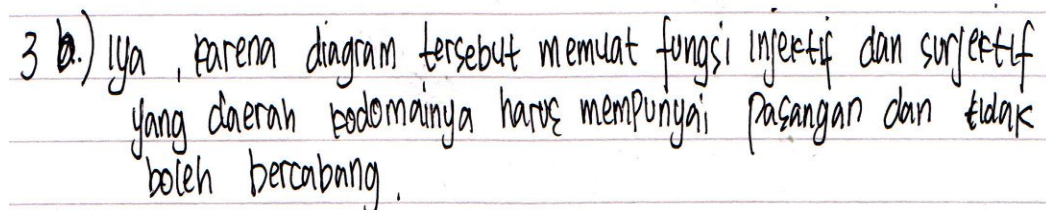 3 b.) Iya, karena diagram tersebut memuat fungsi injektif dan surjektif
yang daerah kodomainya harus mempunyai pasangan dan tidak
boleh bercabang.